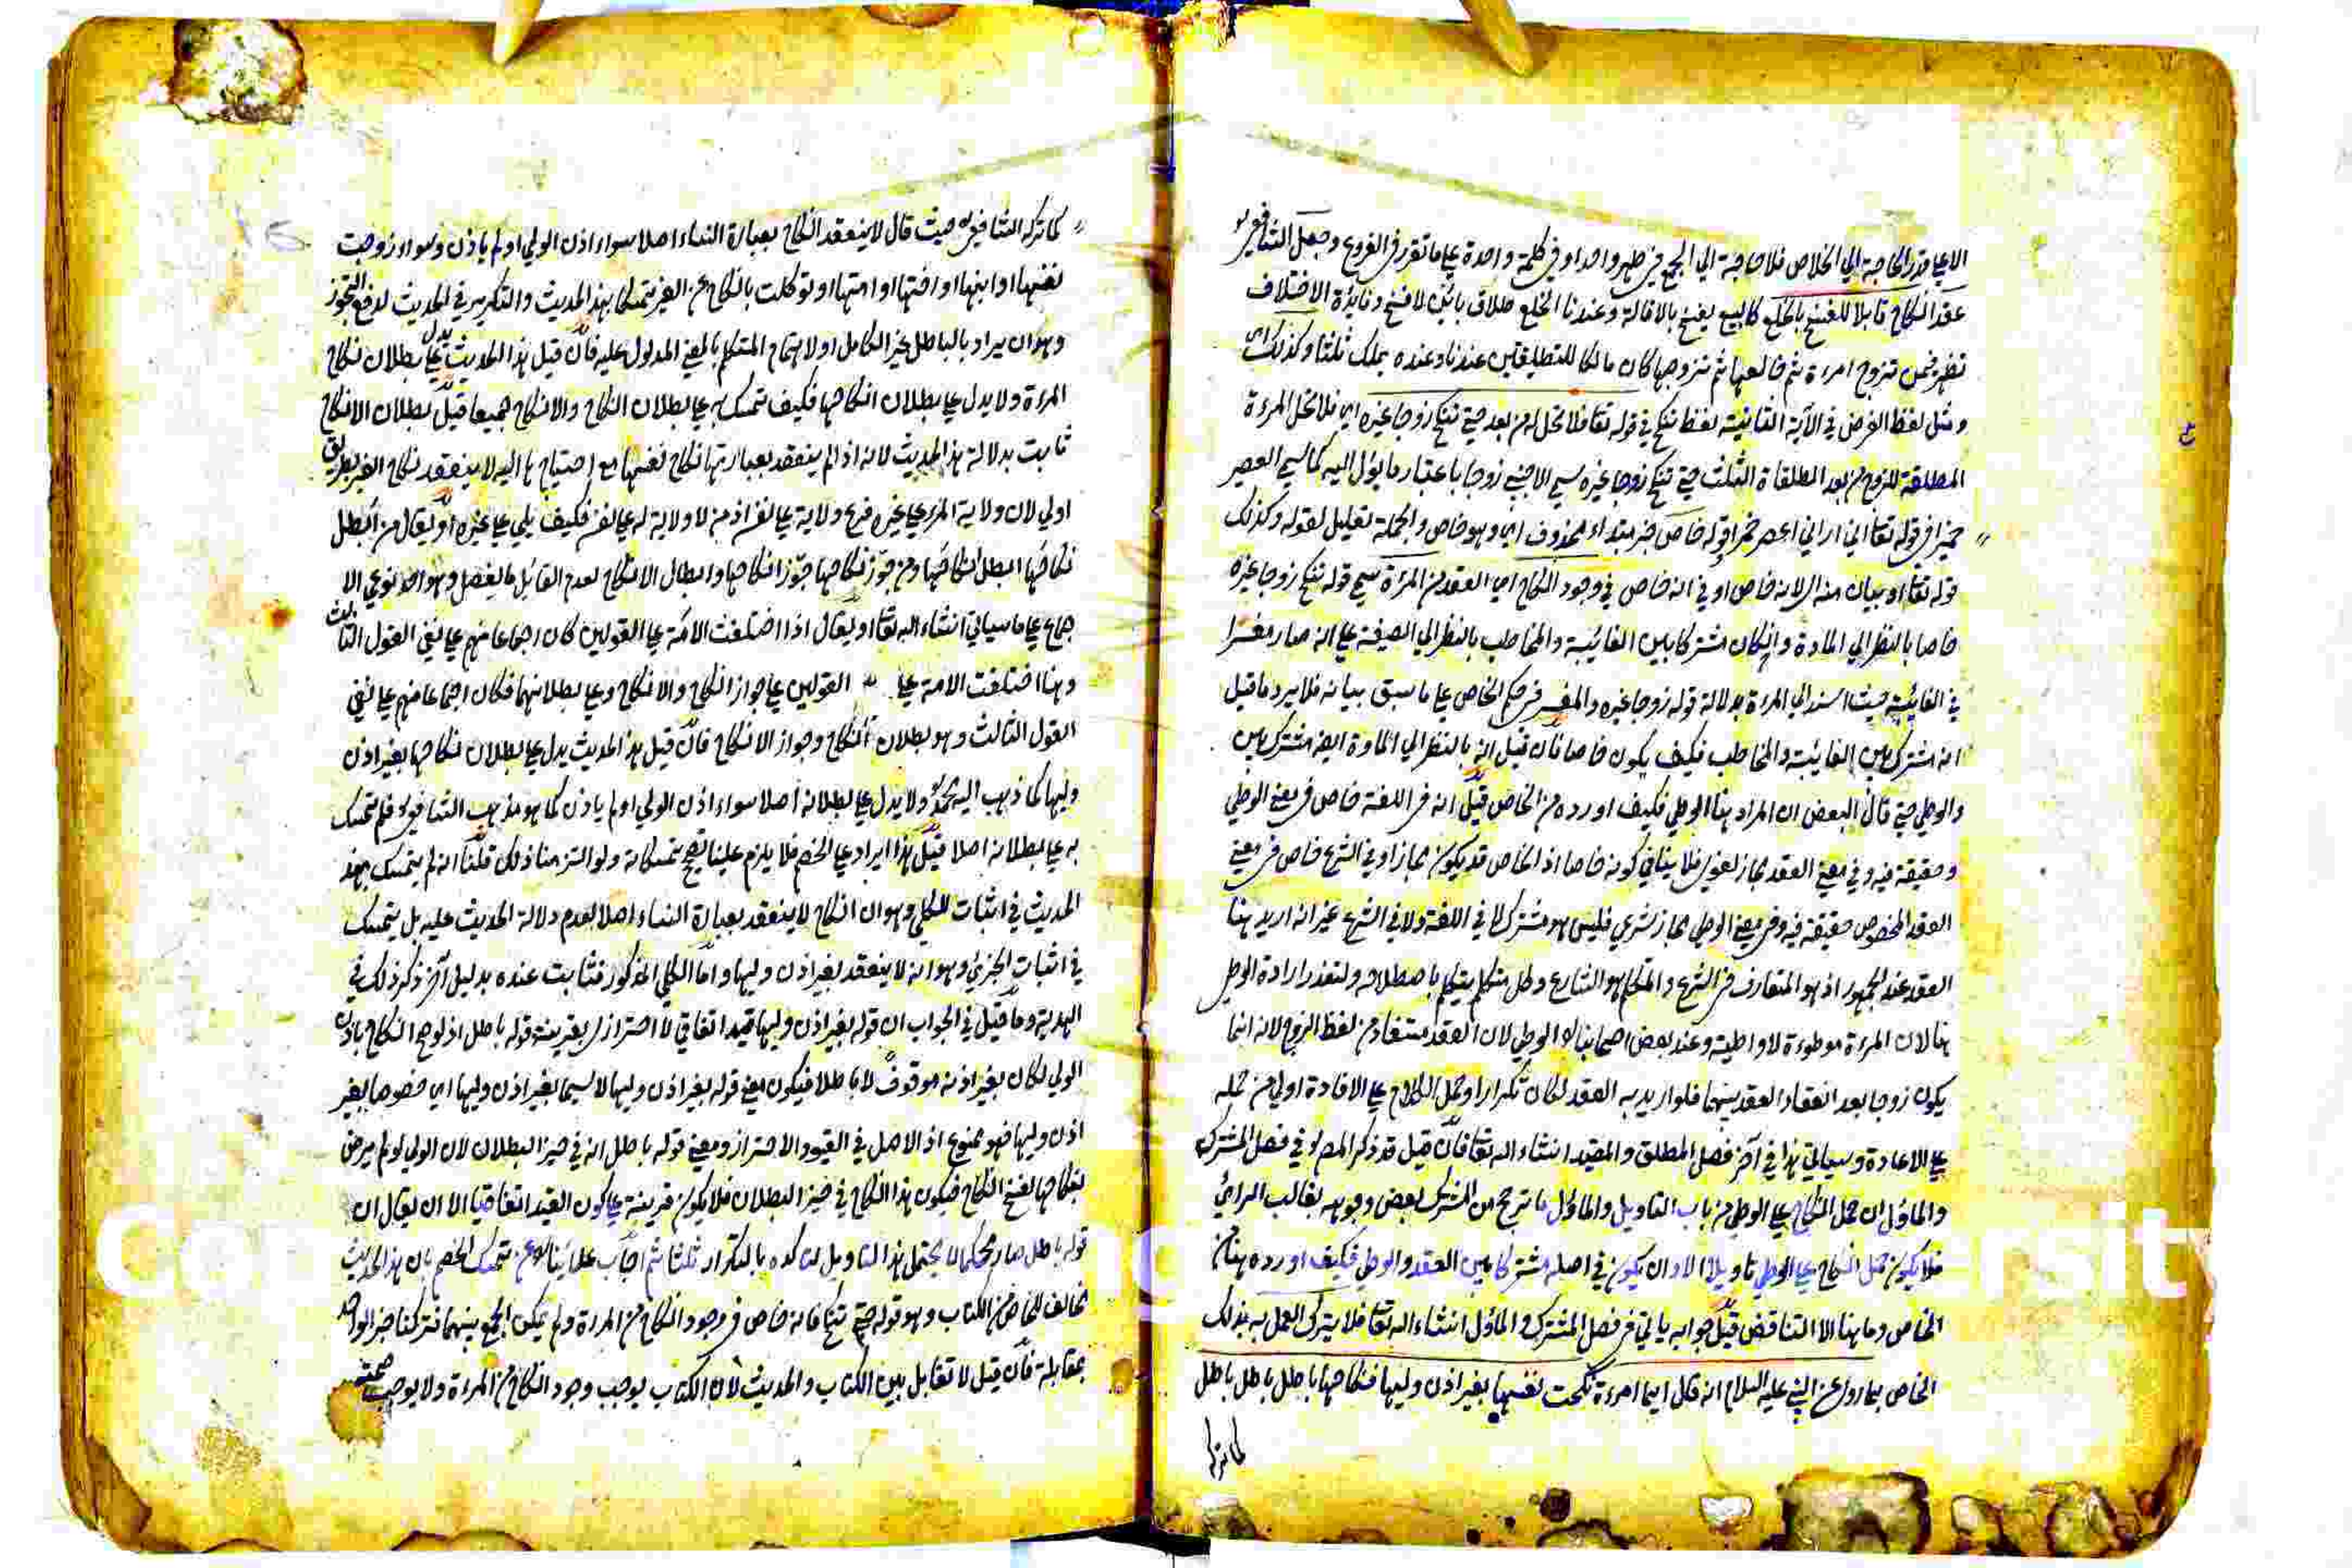 الا علي قدر الحاجة الي الخلاص فلا حاجة الي الجمع في طهر واحد او في كلمة واحدة علي ما تقرر في الفروع وجعل الشافعي
عقد النكاح قابلا للفسخ بالخلع كالبيع يفسخ بالاقالة وعندنا الخلع طلاق بائن لا فسخ وفايدة الاختلاف
تظهر فيمن تزوج امرءة ثم خالعها ثم تزوجها كان مالكا للتطليقتين عندنا وعنده يملك ثلثا وكذلك اي
ومثل لفظ الفرض في الآية الثانية لفظ تنكح في قوله تعا فلا تحل له من بعد حتي تنكح زوجا غيره اي فلا تحل المرءة
المطلقة للزوج من بعد المطلقاة الثلث حتي تنكح زوجا غيره سمي الاجنبي زوجا باعتبار ما يؤل اليه كما سمي العصير
خمرا في قوله تعا اني اراني اعصر خمرا قوله خاص خبر مبتداء محذوف اي وهو خاص والجملة تعليل لقوله وكذلك
قوله تعا او بيان منه اي لانه خاص او في انه خاص في وجود النكاح اي العقد من المرءة سمي قوله تنكح زوجا غيره
خاصا بالنظر الي المادة وان كان مشتركا بين الغائبة والمخاطب بالنظر الي الصيغة علي انه صار مفسرا
في الغائبة حيث اسند الي المرءة بدلالة قوله زوجا غيره والمفسر في حكم الخاص علي ما سبق بيانه فلا يرد ما قيل
انه مشترك بين الغائبة والمخاطب فكيف يكون خاصا فان قيل انه بالنظر الي المادة ايضا مشترك بين
والوطي حتي قال البعض ان المراد هنا الوطي فكيف اورده من الخاص قيل انه في اللغة خاص في معني الوطي
وحقيقة فيه وفي معني العقد مجاز لغوي فلا ينافي كونه خاصا اذ الخاص قد يكون مجازا وفي الشرع خاص في معني
العقد المخصوص حقيقة فيه وفي معني الوطي مجاز شرعي فليس هو مشتركا في اللغة ولا في الشرع غير انه اريد هنا
العقد عند الجمهور اذ هو المتعارف في الشرع والمتكلم هو الشارع وكل متكلم يتكلم باصطلاحه ولتعذر ارادة الوطي
هنا لان المرءة موطوءة لا واطية وعند بعض اصحابنا الوطي لان العقد مستفاد من لفظ الزوج لانه انما
يكون زوجا بعد انعقاد العقد بينهما فلو اريد به العقد لكان تكرارا وحمل الكلام علي الافادة اولي من حمله
علي الاعادة وسياتي هذا في آخر فصل المطلق والمقيد انشاء الله تعا فان قيل قد ذكر المص في فصل المشترك
والماؤل ان حمل النكاح علي الوطي من باب التاويل والماؤل ما ترجح من المشترك بعض وجوهه بغالب الرائ
فلا يكون حمل النكاح علي الوطي تاويلا الا وان يكون في اصله مشتركا بين العقد والوطي فكيف اورده هنا من
الخاص وما هنا الا التناقض قيل جوابه ياتي في فصل المشترك والماؤل انشاء الله تعا فلا يترك العمل به بذلك
الخاص بما روي عن النبي عليه السلام انه قال ايما امرءة نكحت نفسها بغير اذن وليها فنكاحها باطل باطل باطل
كما تركه
كما تركه الشافعي حيث قال لا ينعقد النكاح بعبارة النساء اصلا سواء اذن الولي او لم ياذن وسواء زوجت
نفسها او ابنها او اختها او امتها او توكلت بالنكاح عن الغير متمسكا بهذا الحديث والتكرير في الحديث لدفع التجوز
وهو ان يراد بالباطل غير الكامل او لاهتمام المتكلم بالمعني المدلول عليه فان قيل هذا الحديث يدل علي بطلان نكاح
المرءة ولا يدل علي بطلان انكاحها فكيف تمسك به علي بطلان النكاح والانكاح جميعا قيل بطلان الانكاح
ثابت بدلالة هذا الحديث لانه اذا لم ينعقد بعبارتها نكاح نفسها مع احتياجها اليه لا ينعقد نكاح الغير بطريق
اولي لان ولاية المرء علي غيره فرع ولاية علي نفسه اذ من لا ولاية له علي نفسه فكيف يلي علي غيره او يقال من ابطل
نكاحها ابطل انكاحها ومن جوز نكاحها جوز انكاحها وابطال الانكاح لعدم القائل بالفصل وهو احد نوعي الا
جماع علي ما سياتي انشاء الله تعا او يقال اذا اختلفت الامة علي القولين كان اجماعا منهم علي نفي القول الثالث
وهنا اختلفت الامة علي القولين علي جواز النكاح والانكاح وعلي بطلانهما فكان اجماعا منهم علي نفي
القول الثالث وهو بطلان النكاح وجواز الانكاح فان قيل هذا الحديث يدل علي بطلان نكاحها بغير اذن
وليها كما ذهب اليه محمد ولا يدل علي بطلانه اصلا سواء اذن الولي او لم ياذن كما هو مذهب الشافعي فلم تمسك
به علي بطلانه اصلا قيل هذا ايراد علي الخصم فلا يلزم علينا تصحيح تمسكاته ولو التزمنا ذلك قلنا انه لم يتمسك بهذا
الحديث في اثبات الكلي وهو ان النكاح لا ينعقد بعبارة النساء اصلا لعدم دلالة الحديث عليه بل يتمسك
في اثبات الجزئي وهو انه لا ينعقد بغير اذن وليها واما الكلي المذكور فثابت عنده بدليل آخر ذكر ذلك في
الهداية وما قيل في الجواب ان قوله بغير اذن وليها قيد اتفاقي لا احترازي بقرينة قوله باطل اذ لو صح النكاح باذن
الولي لكان بغير اذنه موقوف لا باطلا فيكون معني قوله بغير اذن وليها لا سيما بغير اذن وليها اي خصوصا بغير
اذن وليها فهو ممنوع اذ الاصل في القيود الاحتراز ومعني قوله باطل انه في حيز البطلان لان الولي لو لم يرض
بنكاحها يفسخ النكاح فيكون هذا النكاح في حيز البطلان فلا يكون قرينة علي كون القيد اتفاقيا الا ان يقال ان
قوله باطل صار محكما لا يحتمل هذا التاويل لتاكده بالتكرار ثلثا ثم اجاب علمائنا عن تمسك الخصم بان هذا الحديث
مخالف للخاص من الكتاب وهو قوله حتي تنكح فانه خاص في وجود النكاح من المرءة ولم يمكن الجمع بينهما فتركنا خبر الواحد
بمقابلة فان قيل لا تقابل بين الكتاب والحديث لان الكتاب يوجب وجود النكاح من المرءة ولا يوجب صحته